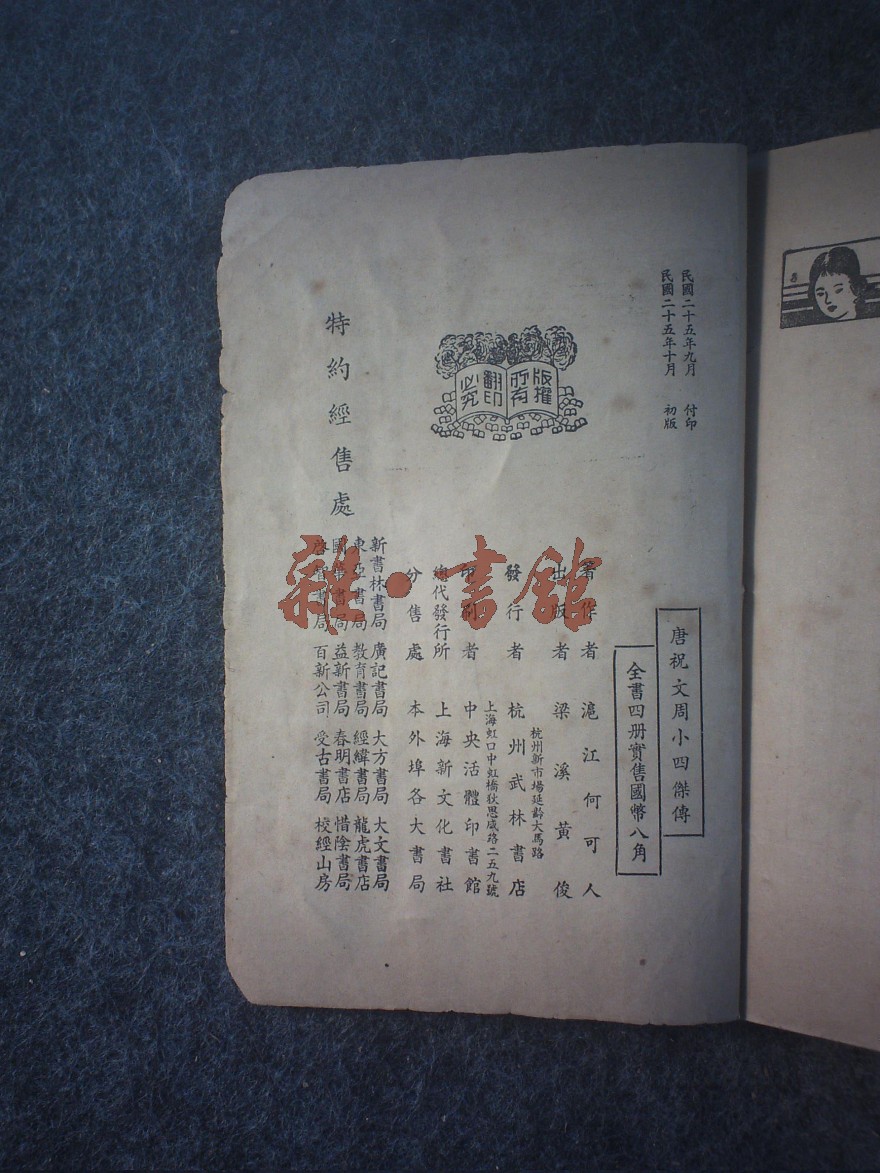 民國二十五年九月 付印
民國二十五年十月 初版
版權所有
翻印必究
唐祝文周小四傑傳
全書四册實售國幣八角
著作者 滬江何可人
出版者 梁溪黃俊
杭州新市場延齡大馬路
發行者 杭州武林書店
上海虹口中虹橋狄思威路二五九號
印刷者 中央活體印書館
總代發行所 上海新文化書社
分售處 本外埠各大書局
特約經售處
新書林書局 廣記書局 大方書局 大文書局
東亞書局 教育書局 經緯書局 龍虎書店
國華書局 益新書局 春明書店 惜陰書局
啓智書局 百新公司 受古書局 校經山房
雜·書館